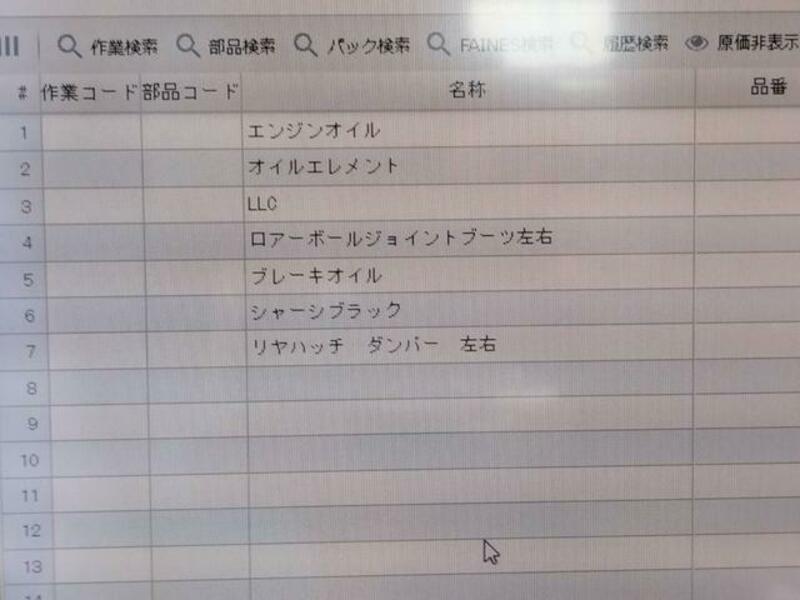 作業検索 部品検索 パック検索 FAINES検索 履歴検索 原価非表示
# 作業コード 部品コード 名称 品番
1 エンジンオイル
2 オイルエレメント
3 LLC
4 ロアーボールジョイントブーツ左右
5 ブレーキオイル
6 シャーシブラック
7 リヤハッチ　ダンパー　左右
8
9
10
11
12
13
14